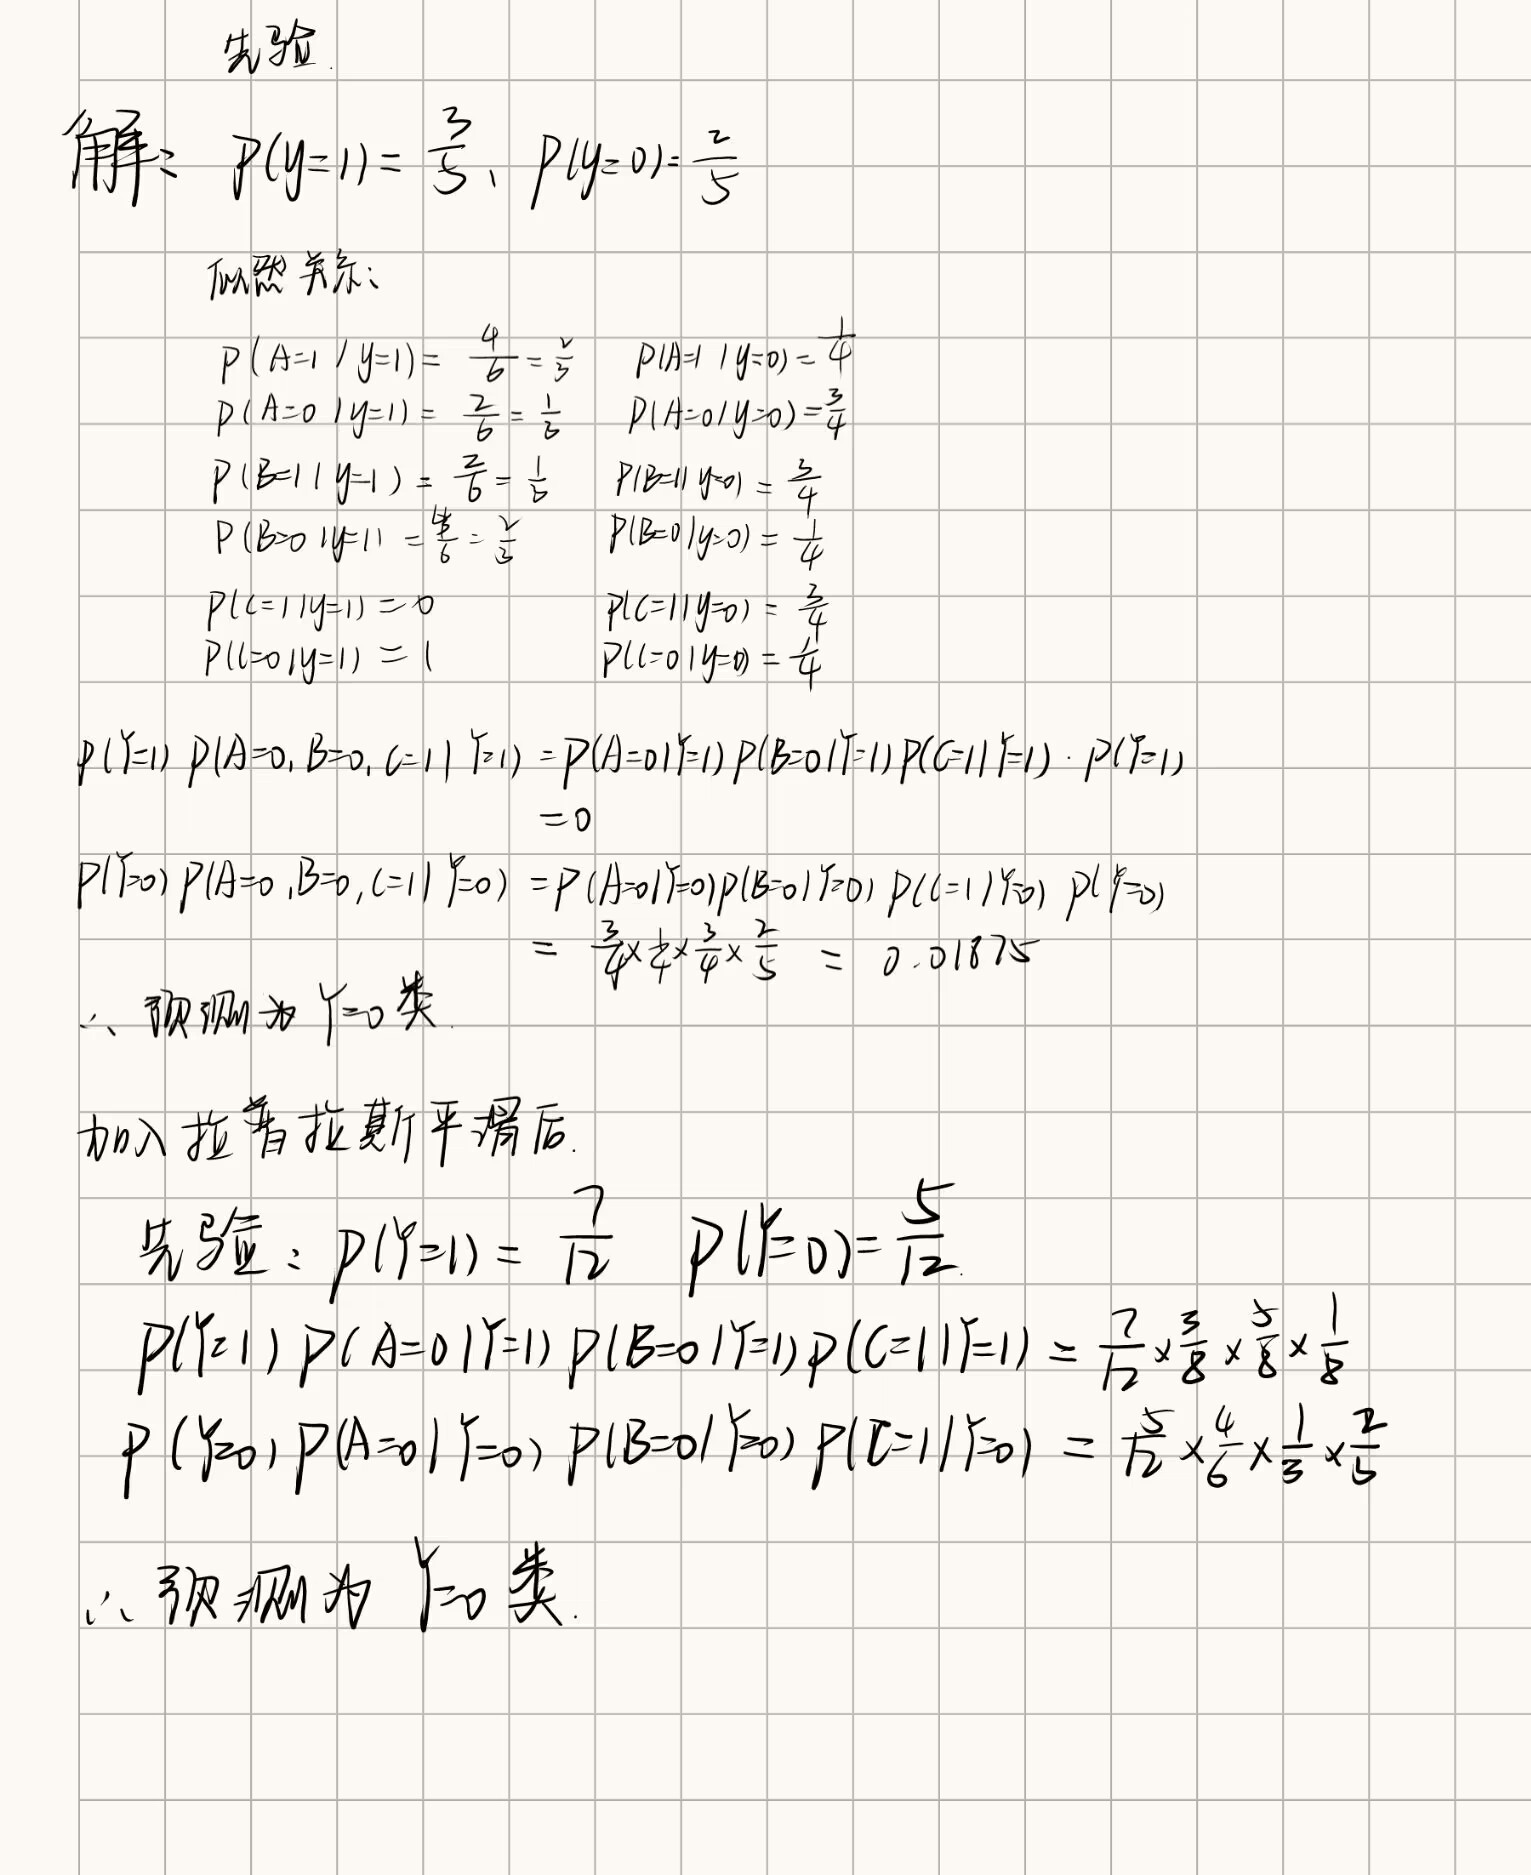 先验.
解: P(y=1) = 3/5、P(y=0)= 2/5
似然关系:
P(A=1 | y=1) = 4/6 = 2/3 P(A=1 | y=0) = 1/4
P(A=0 | y=1) = 2/6 = 1/3 P(A=0 | y=0) = 3/4
P(B=1 | y=1) = 2/6 = 1/3 P(B=1 | y=0) = 3/4
P(B=0 | y=1) = 4/6 = 2/3 P(B=0 | y=0) = 1/4
P(C=1 | y=1) = 0 P(C=1 | y=0) = 3/4
P(C=0 | y=1) = 1 P(C=0 | y=0) = 1/4
P(Y=1) P(A=0, B=0, C=1 | Y=1) = P(A=0|Y=1) P(B=0|Y=1) P(C=1|Y=1) · P(Y=1)
= 0
P(Y=0) P(A=0, B=0, C=1 | Y=0) = P(A=0|Y=0) P(B=0|Y=0) P(C=1|Y=0) P(Y=0)
= 3/4 × 1/4 × 3/4 × 2/5 = 0.01875
∴ 预测为 Y=0 类.
加入拉普拉斯平滑后.
先验: P(Y=1) = 7/12 P(Y=0) = 5/12.
P(Y=1) P(A=0|Y=1) P(B=0|Y=1) P(C=1|Y=1) = 7/12 × 3/8 × 5/8 × 1/8
P(Y=0) P(A=0|Y=0) P(B=0|Y=0) P(C=1|Y=0) = 5/12 × 4/6 × 1/3 × 2/3
∴ 预测为 Y=0 类.